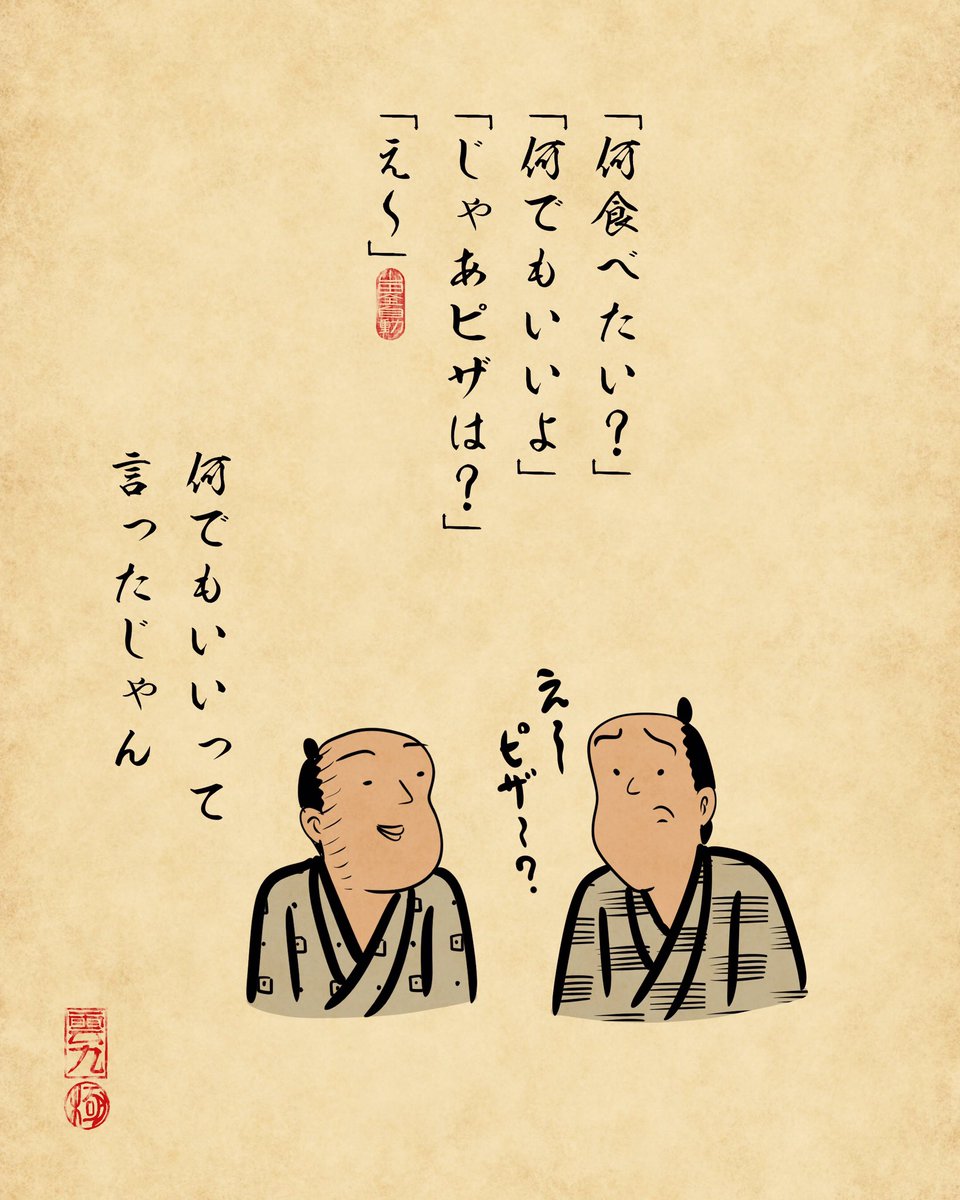 「何食べたい？」
「何でもいいよ」
「じゃあピザは？」
「え〜」
何でもいいって
言ったじゃん
え〜
ピザ〜？